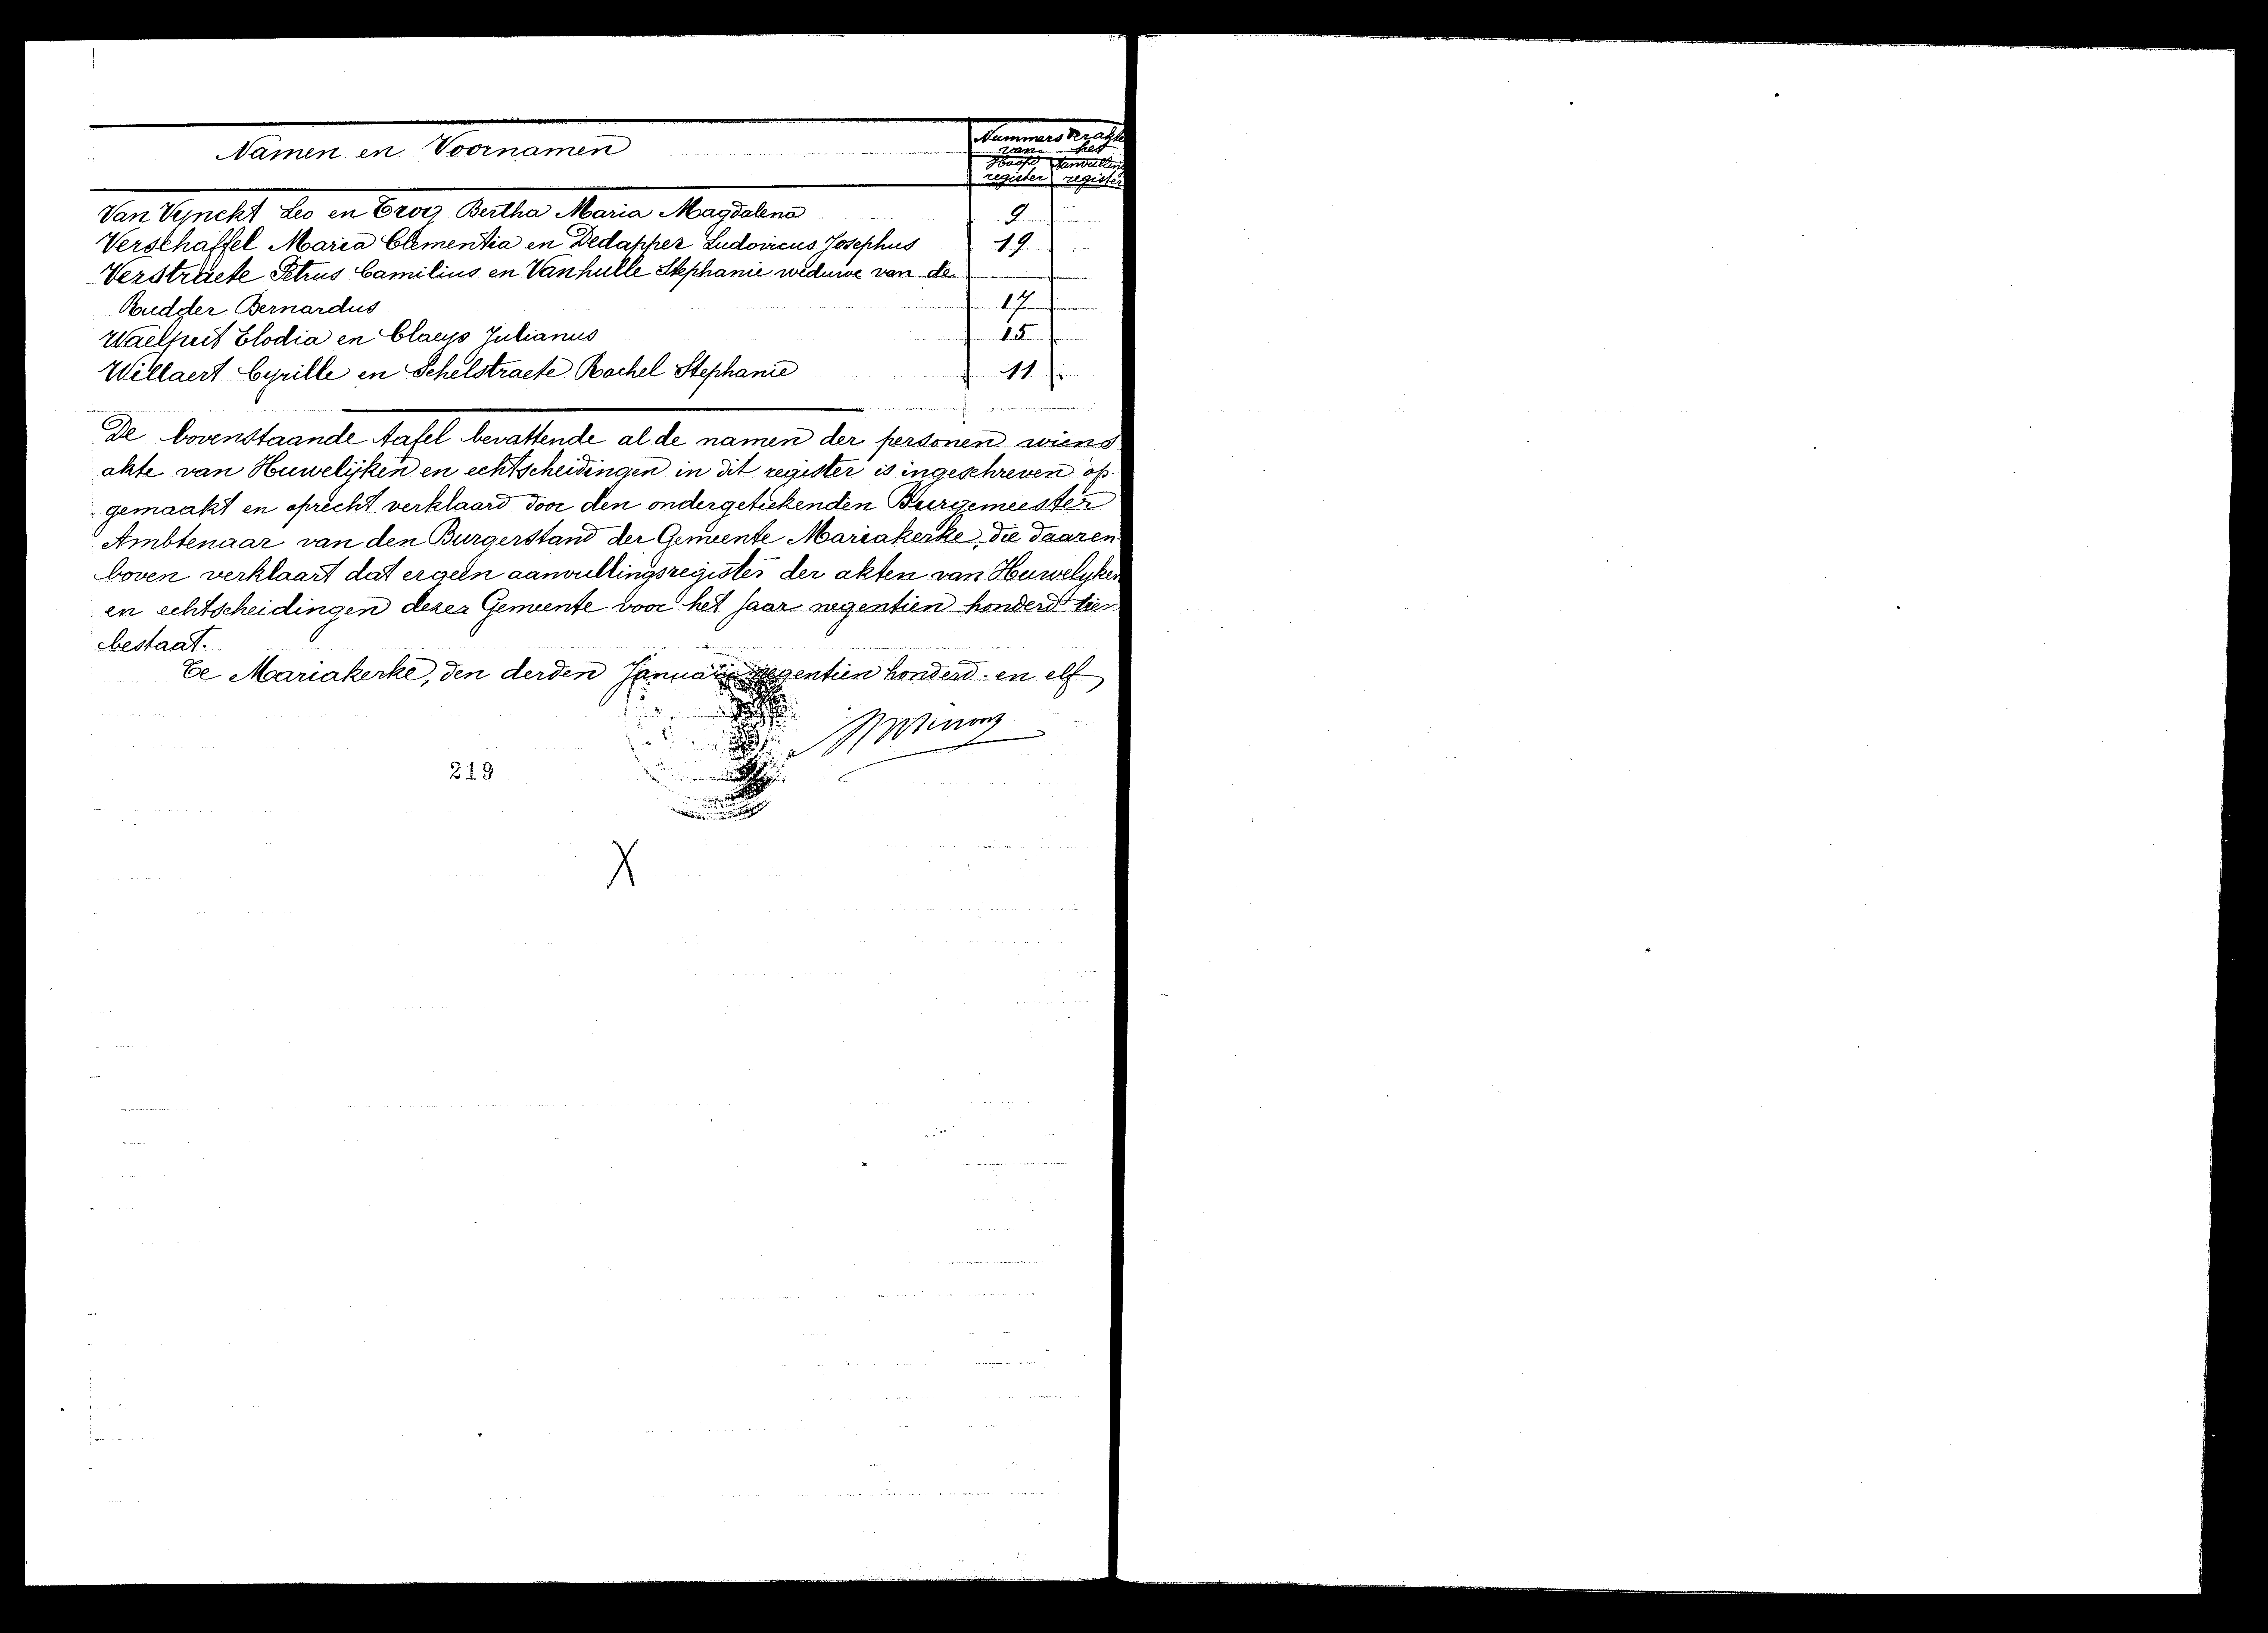 Namen en Voornamen
Nummers der akte
van het
Hoofd register
Aanvulling register
Van Vynckt Leo en Troq Bertha Maria Magdalena 9
Verschaffel Maria Clementia en Dedapper Ludovicus Josephus 19
Verstraete Petrus Camilius en Vanhulle Stephanie weduwe van de
Rudder Bernardus 17
Waelput Elodia en Claeys Julianus 15
Willaert Cyrille en Schelstraete Rachel Stephanie 11
De bovenstaande tafel bevattende al de namen der personen wiens
akte van Huwelijken en echtscheidingen in dit register is ingeschreven op-
gemaakt en oprecht verklaard door den ondergeteekenden Burgemeester
Ambtenaar van den Burgerstand der Gemeente Mariakerke, die daaren
boven verklaart dat er geen aanvullingsregister der akten van Huwelyken
en echtscheidingen dezer Gemeente voor het jaar negentien honderd tien
bestaat.
Te Mariakerke, den derden Januari negentien honderd en elf
219
X